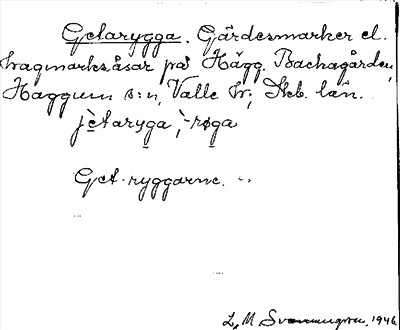 Getarygga. Gärdesmarker el.
hagmarksåsar på Hägg. Backagården,
Haggum s:n, Valle hr, Skb. län.
jètaryga, -røga
Get-ryggarne.
L. M. 1946.